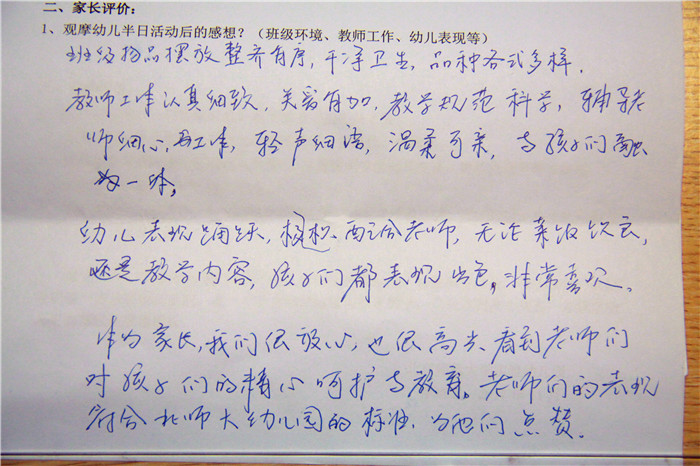 二、家长评价：
1、观摩幼儿半日活动后的感想？（班级环境、教师工作、幼儿表现等）
班级物品摆放整齐有序，干净卫生，品种各式多样。
教师工作认真细致，关爱有加，教学规范科学，辅导老
师细心，工作，轻声细语，温柔可亲，与孩子们融
为一体；
幼儿表现踊跃，积极配合老师，无论菜饭饮食，
还是教学内容，孩子们都表现出色，非常喜欢。
作为家长，我们很放心，也很高兴看到老师们
对孩子们的精心呵护与教育。老师们的表现
符合北师大幼儿园的标准，为他们点赞。